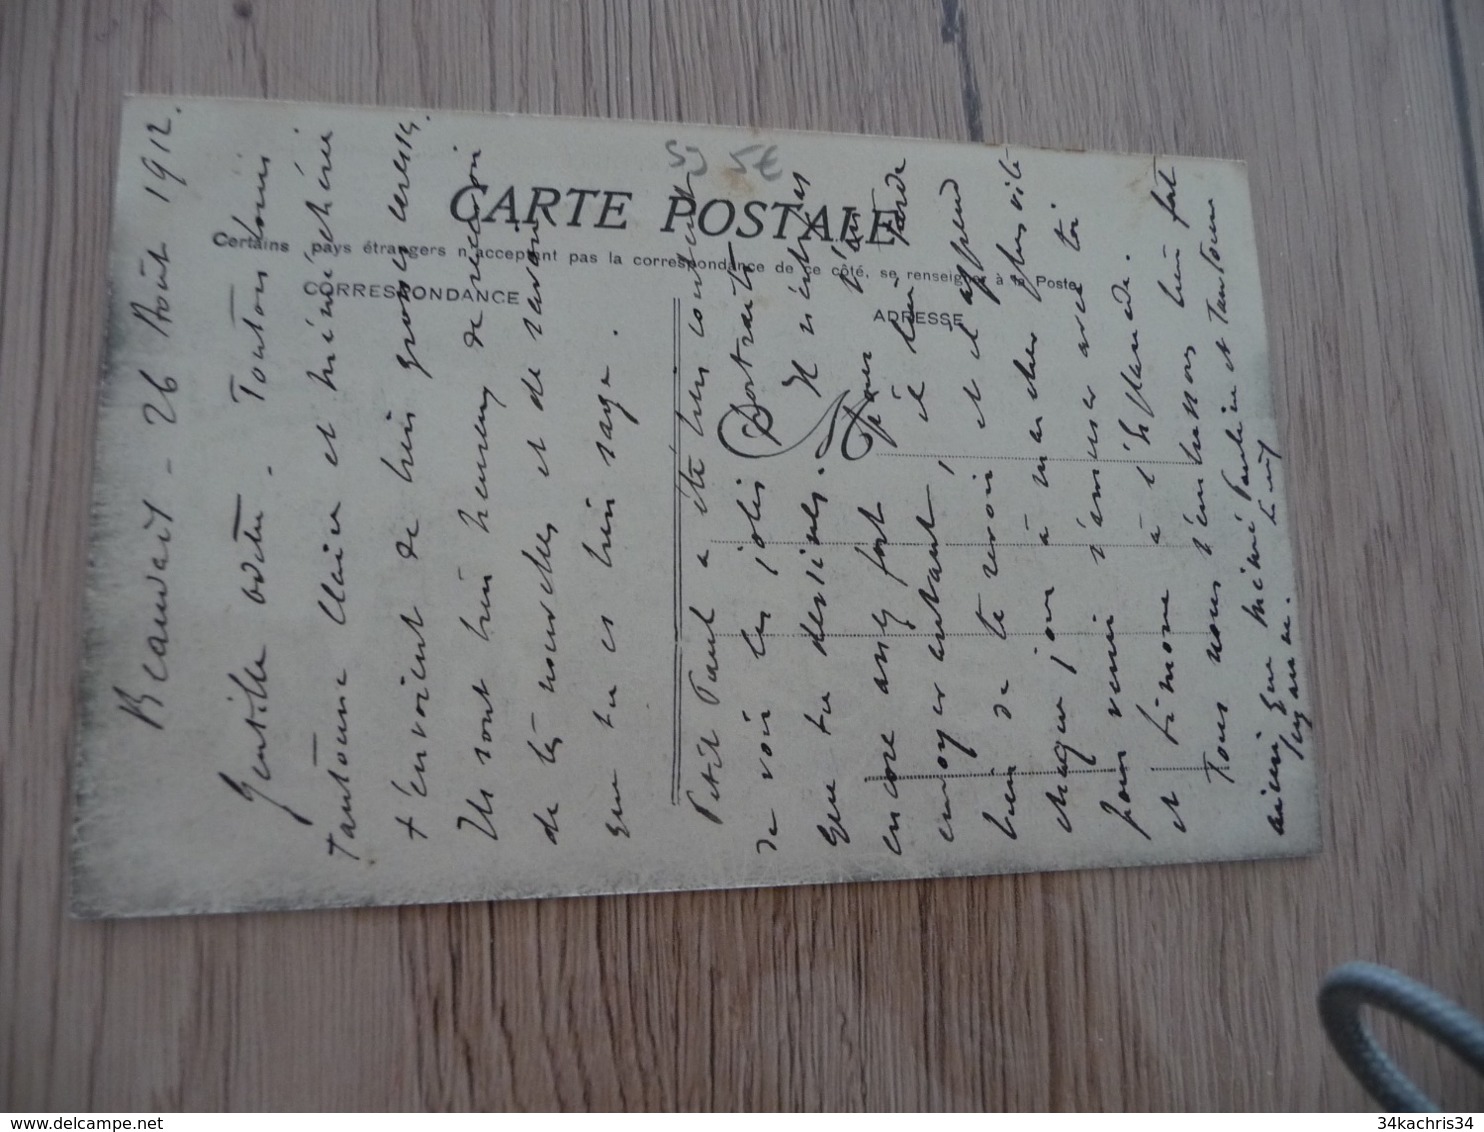 Beauvais - 26 Août 1912.
Gentille Odette. Tonton Louis
tantonne Claire et mémé chérie
t'envoient de bien grosses caresses.
Ils sont bien heureux de recevoir
de tes nouvelles et de savoir
que tu es bien sage.
Petit Paul a été bien content
de voir les jolis portraits
que tu dessines. Il n'est pas
encore assez fort pour t'en
envoyer autant, il lui tarde
bien de te revoir et il apprend
chaque jour à marcher plus vite
pour venir s'amuser avec toi
et Simone à l'Esplanade.
Tous nous t'embrassons bien fort
ainsi que mémé Pauline et Tantonne
Suzanne. Louis
CARTE POSTALE
Certains pays étrangers n'acceptent pas la correspondance de ce côté, se renseigner à la Poste.
CORRESPONDANCE
ADRESSE
5€
34kachris34